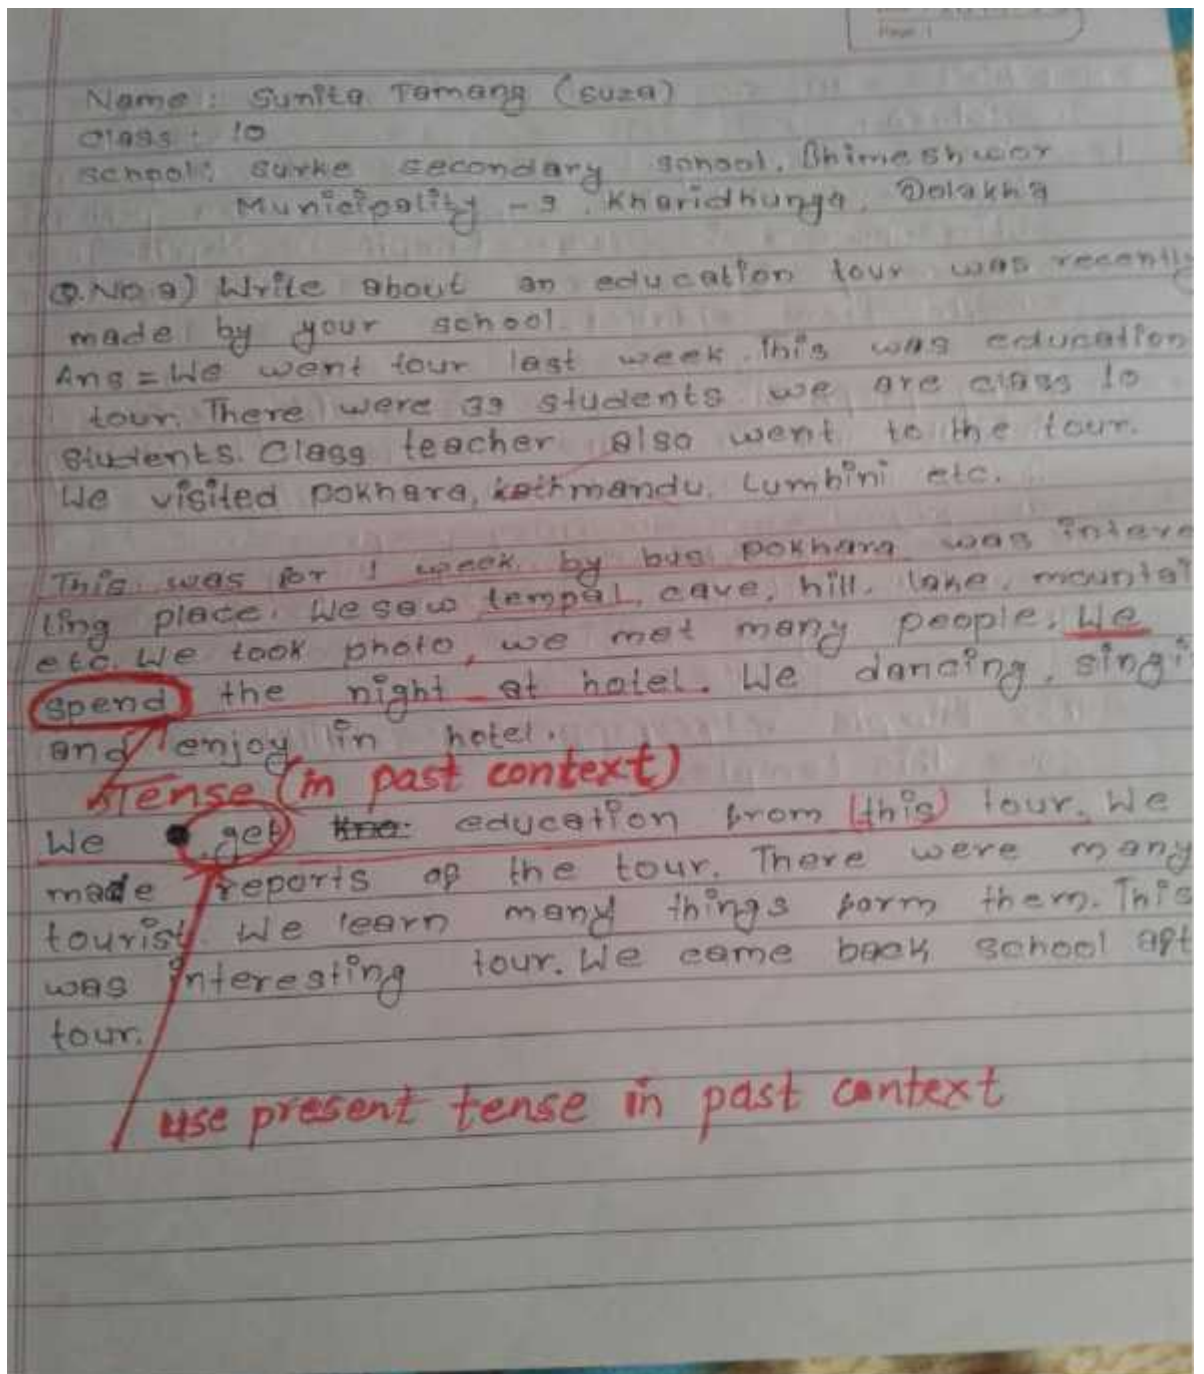 Page:
Name: Sunita Tamang (suza)
Class: 10
school: surke secondary school, Bhimeshwor
Municipality - 9, Kharidhunga, Dolakha
Q.No.9) Write about an education tour was recently
made by your school.
Ans = We went tour last week. This was education
tour. There were 39 students. we are class 10
students. Class teacher also went to the tour.
We visited pokhara, kathmandu, Lumbini etc.
This was for 1 week by bus pokhara was intere
ting place. We saw tempal, cave, hill, lake, mountai
etc. We took photo, we met many people. We
spend the night at hotel. We dancing, singi
and enjoy in hotel.
Tense (in past context)
We get education from (this) tour. We
made reports of the tour. There were many
tourist. We learn many things form them. This
was interesting tour. We came back school aft
tour.
use present tense in past context